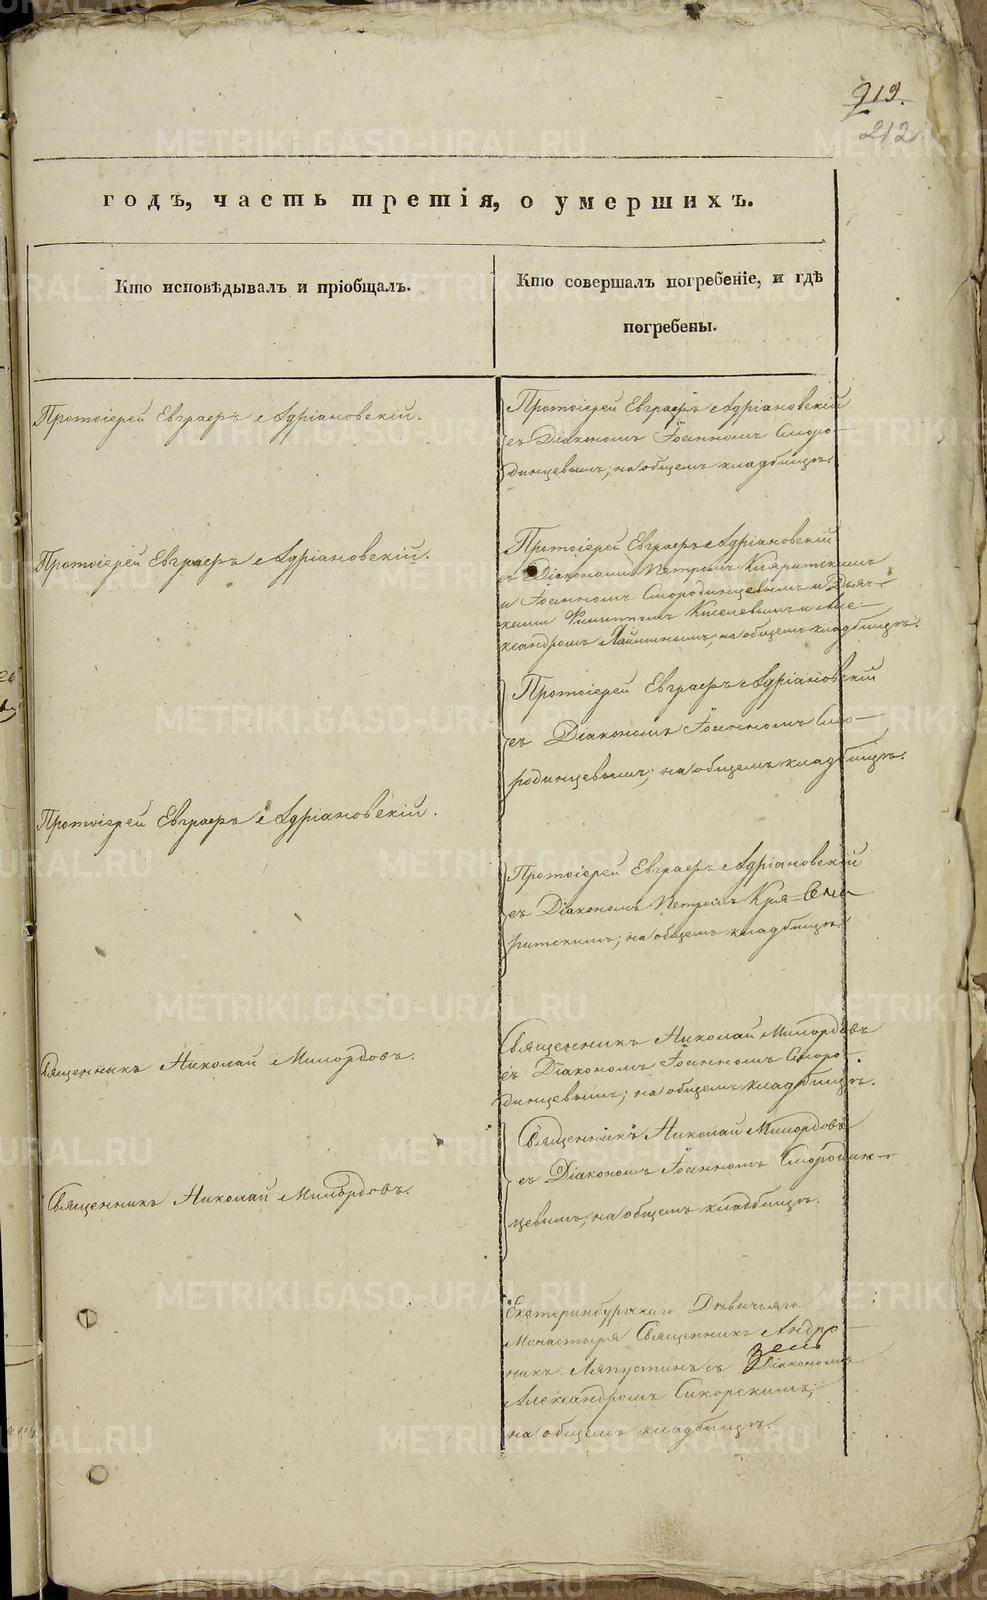 219.
212
годъ, часть третія, о умершихъ.
Кто исповѣдывалъ и пріобщалъ.
Кто совершалъ погребеніе, и гдѣ
погребены.
Протоіерей Евграфъ Адріановскій.
Протоіерей Евграфъ Адріановскій
съ Діакономъ Іоанномъ Сморо-
динцевымъ; на общемъ кладбищѣ.
Протоіерей Евграфъ Адріановскій.
Протоіерей Евграфъ Адріановскій
съ Діаконами Петромъ
и Іоанномъ Смородинцевымъ и Дьяч-
ками Филиппомъ Киселевымъ и Але-
ксандромъ на общемъ кладбищѣ.
Протоіерей Евграфъ Адріановскій
съ Діакономъ Іоанномъ Смо-
родинцевымъ; на общемъ кладбищѣ.
Протоіерей Евграфъ Адріановскій.
Протоіерей Евграфъ Адріановскій
съ Діакономъ Петромъ
на общемъ кладбищѣ.
Священникъ Николай Милордовъ.
Священникъ Николай Милордовъ
съ Діакономъ Іоанномъ Сморо-
динцевымъ; на общемъ кладбищѣ.
Священникъ Николай Милордовъ.
Священникъ Николай Милордовъ
съ Діакономъ Іоанномъ Смородин-
цевымъ, на общемъ кладбищѣ.
Екатеринбургскаго Дѣвичьяго
Монастыря Священникъ Андро-
никъ Ляпустинъ съ Діакономъ
Александромъ Сикорскимъ;
на общемъ кладбищѣ.
METRIKI.GASO-URAL.RU